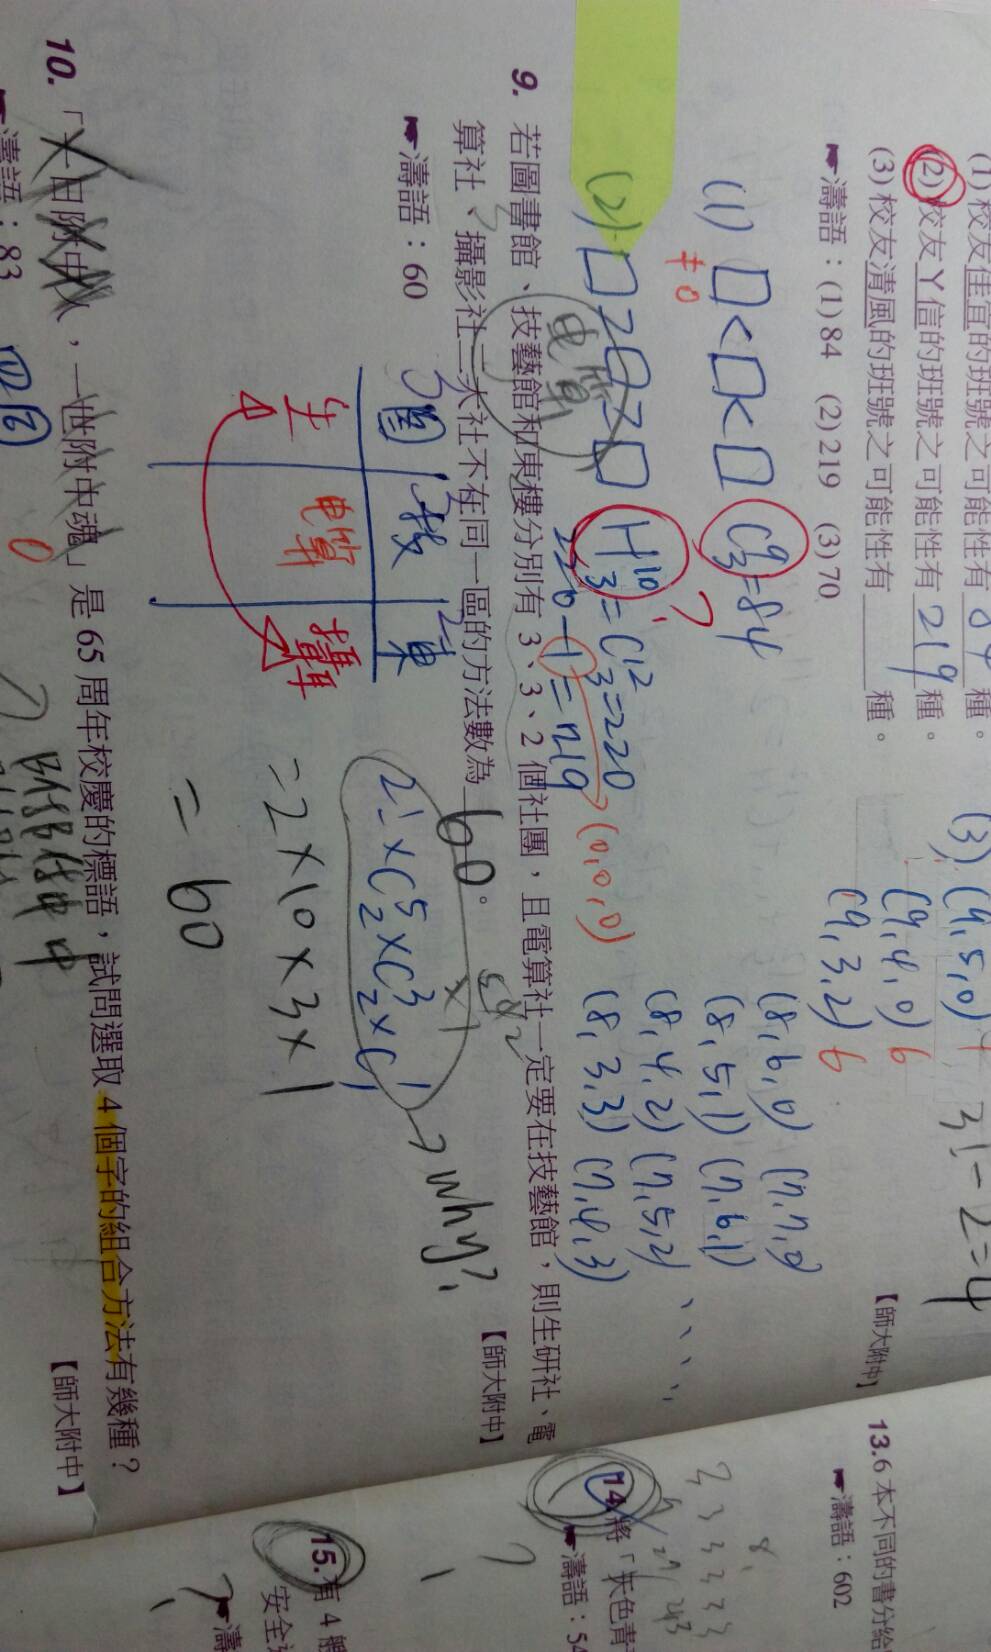 (1) 校友佳宜的班號之可能性有 84 種。
(2) 校友丫信的班號之可能性有 219 種。
(3) 校友清風的班號之可能性有 種。
☛濤語：(1) 84 (2) 219 (3) 70
【師大附中】
(1) □<□<□ C⁹₃=84
≠0
(2) □≥□≥□ H¹⁰₃=C¹²₃=220
220-1=219
?
(0,0,0)
(3) (9,5,0) 4
3!-2=4
(9,4,0) 6
(9,3,2) 6
(8,6,0) (7,7,0)
(8,5,1) (7,6,1)
(8,4,2) (7,5,2)
(8,3,3) (7,4,3)
9. 若圖書館、技藝館和東樓分別有 3、3、2 個社團，且電算社一定要在技藝館，則生研社、電
算社、攝影社三大社不在同一區的方法數為 60 。
【師大附中】
☛濤語：60
電算
3圖 技 東
生 電算 攝
2!×C⁵₂×C³₂×C¹₁
why?
=2×10×3×1
=60
10. 「一日附中人，一世附中魂」是 65 周年校慶的標語，試問選取 4 個字的組合方法有幾種？
【師大附中】
☛濤語：83
13. 6 本不同的書分給
☛濤語：602
14. 將「天色青
☛濤語：54
15. 有 4 艘
安全
☛濤